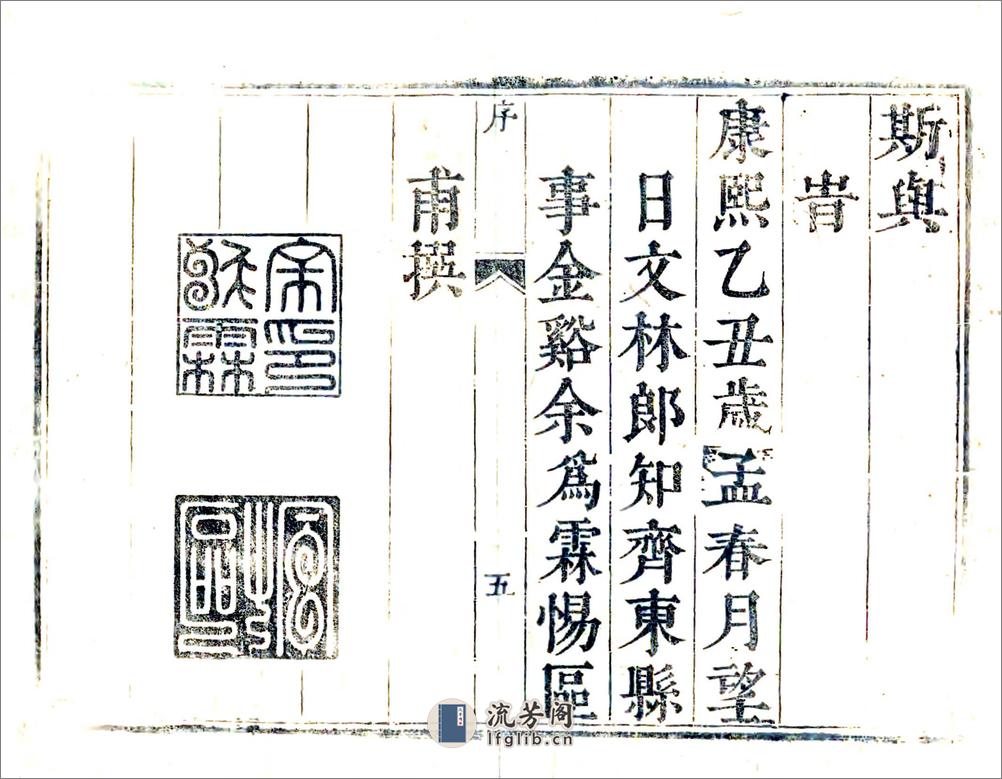 斯與
旹
康熙乙丑歲孟春月望
日文林郎知齊東縣
事金谿余爲霖惕區
序
五
甫撰
余印
爲霖
流芳阁
lfglib.cn